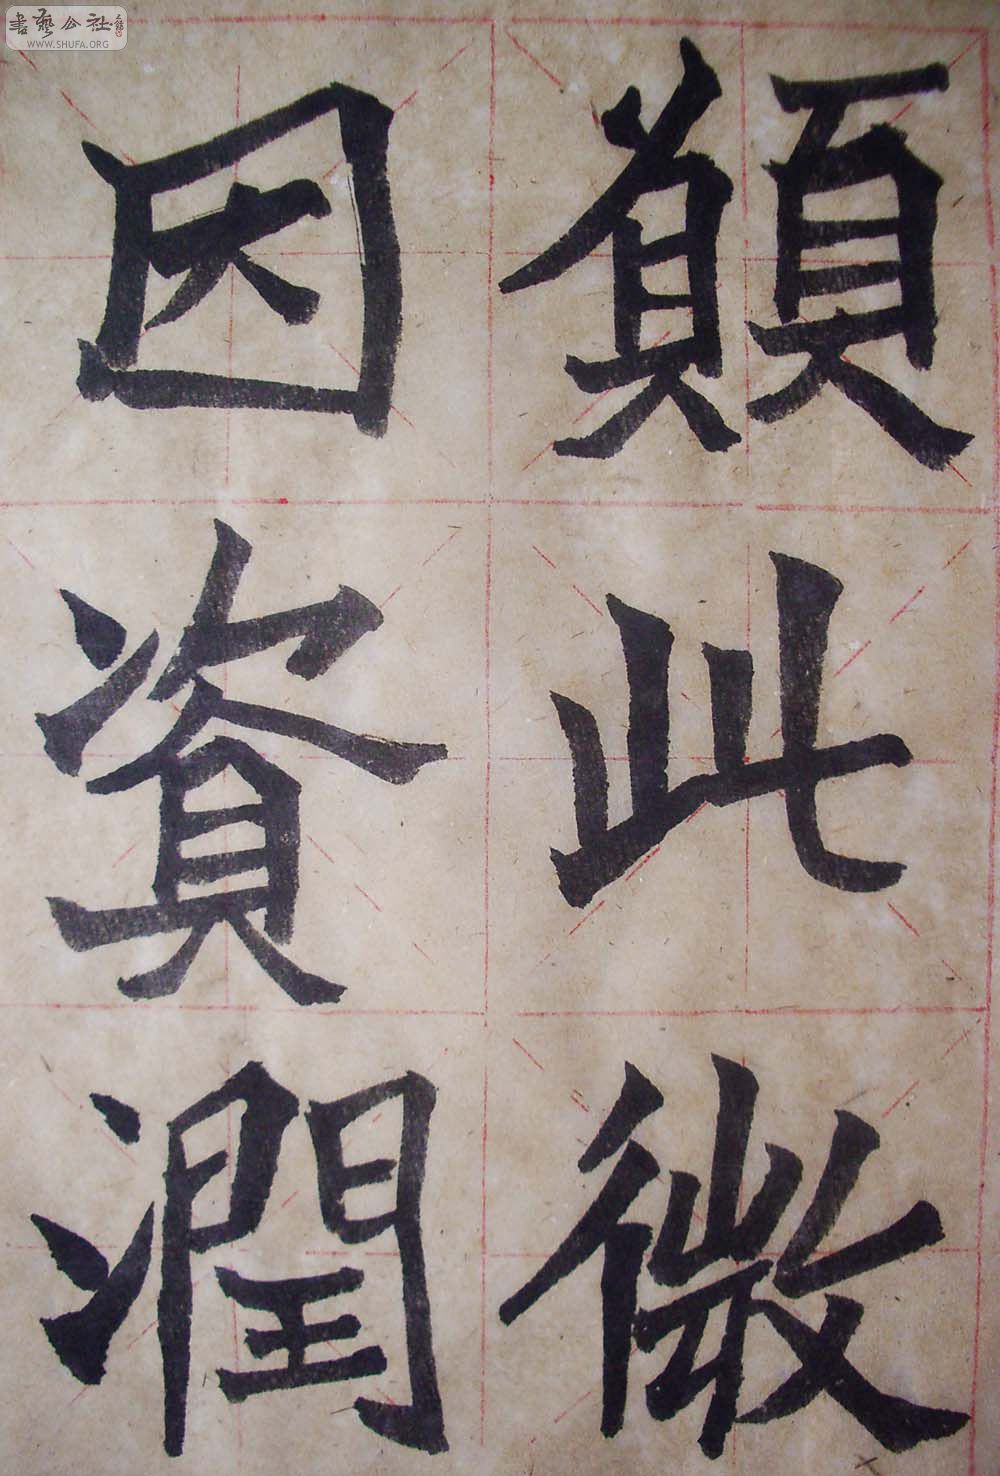 書藝公社
WWW.SHUFA.ORG
願此微
因資潤